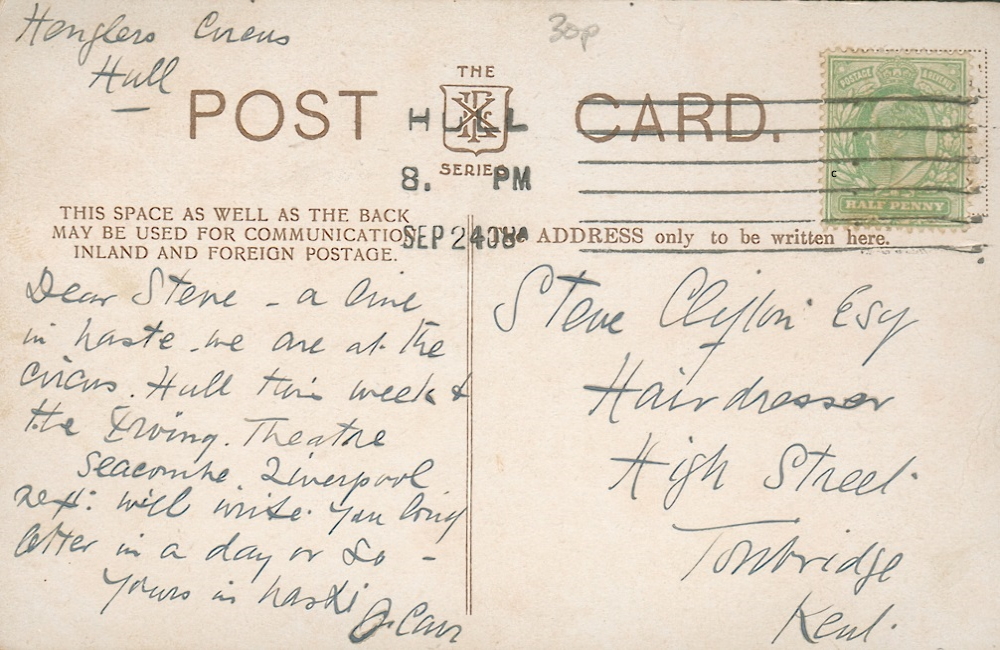 Henglers Circus
Hull
30p
THE
POST CARD.
SERIES
HULL
8. PM
SEP 24 08
POSTAGE REVENUE
HALF PENNY
THIS SPACE AS WELL AS THE BACK
MAY BE USED FOR COMMUNICATION
INLAND AND FOREIGN POSTAGE.
ADDRESS only to be written here.
Dear Steve - a line
in haste. we are at the
circus. Hull this week &
the Irving. Theatre
Seacombe. Liverpool
next: will write you long
letter in a day or so -
Yours in haste
Carr
Steve Clifton Esq
Hairdresser
High Street.
Tonbridge
Kent.